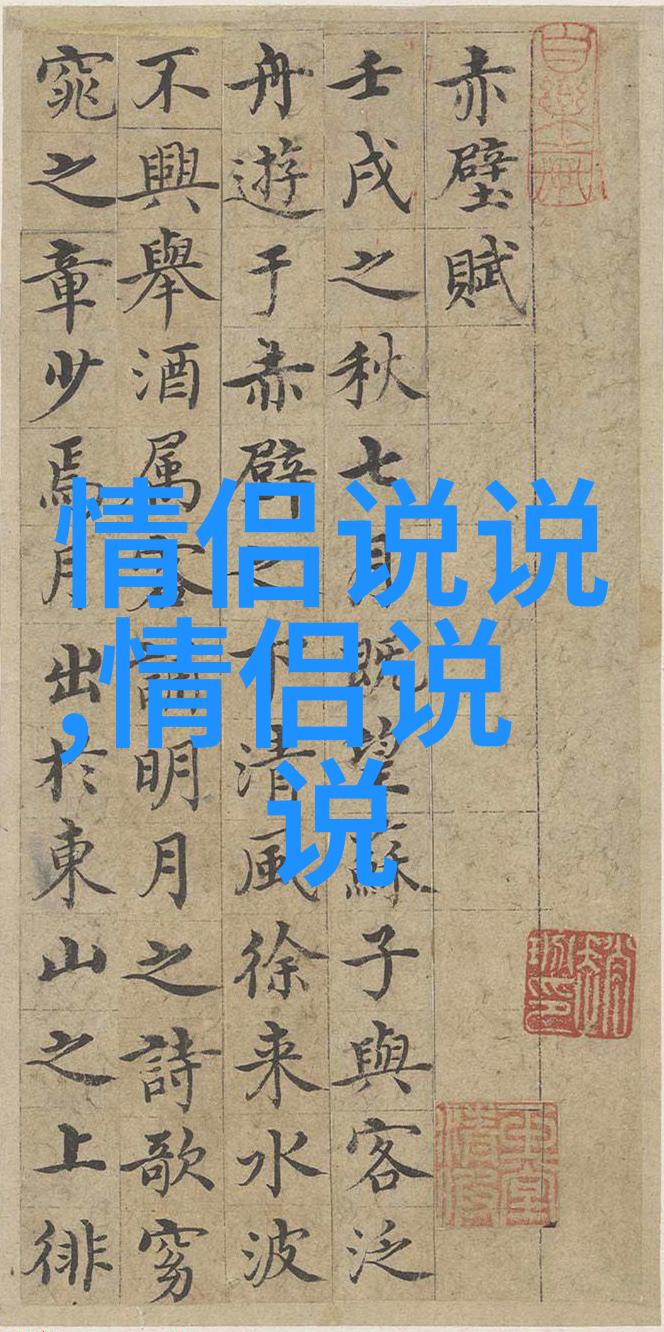 赤壁賦
壬戌之秋七月既望蘇子與客泛
舟遊于赤壁之下清風徐来水波
不興舉酒属客誦明月之詩歌窈
窕之章少焉月出於東山之上徘
情侣说说
,情侣说
说